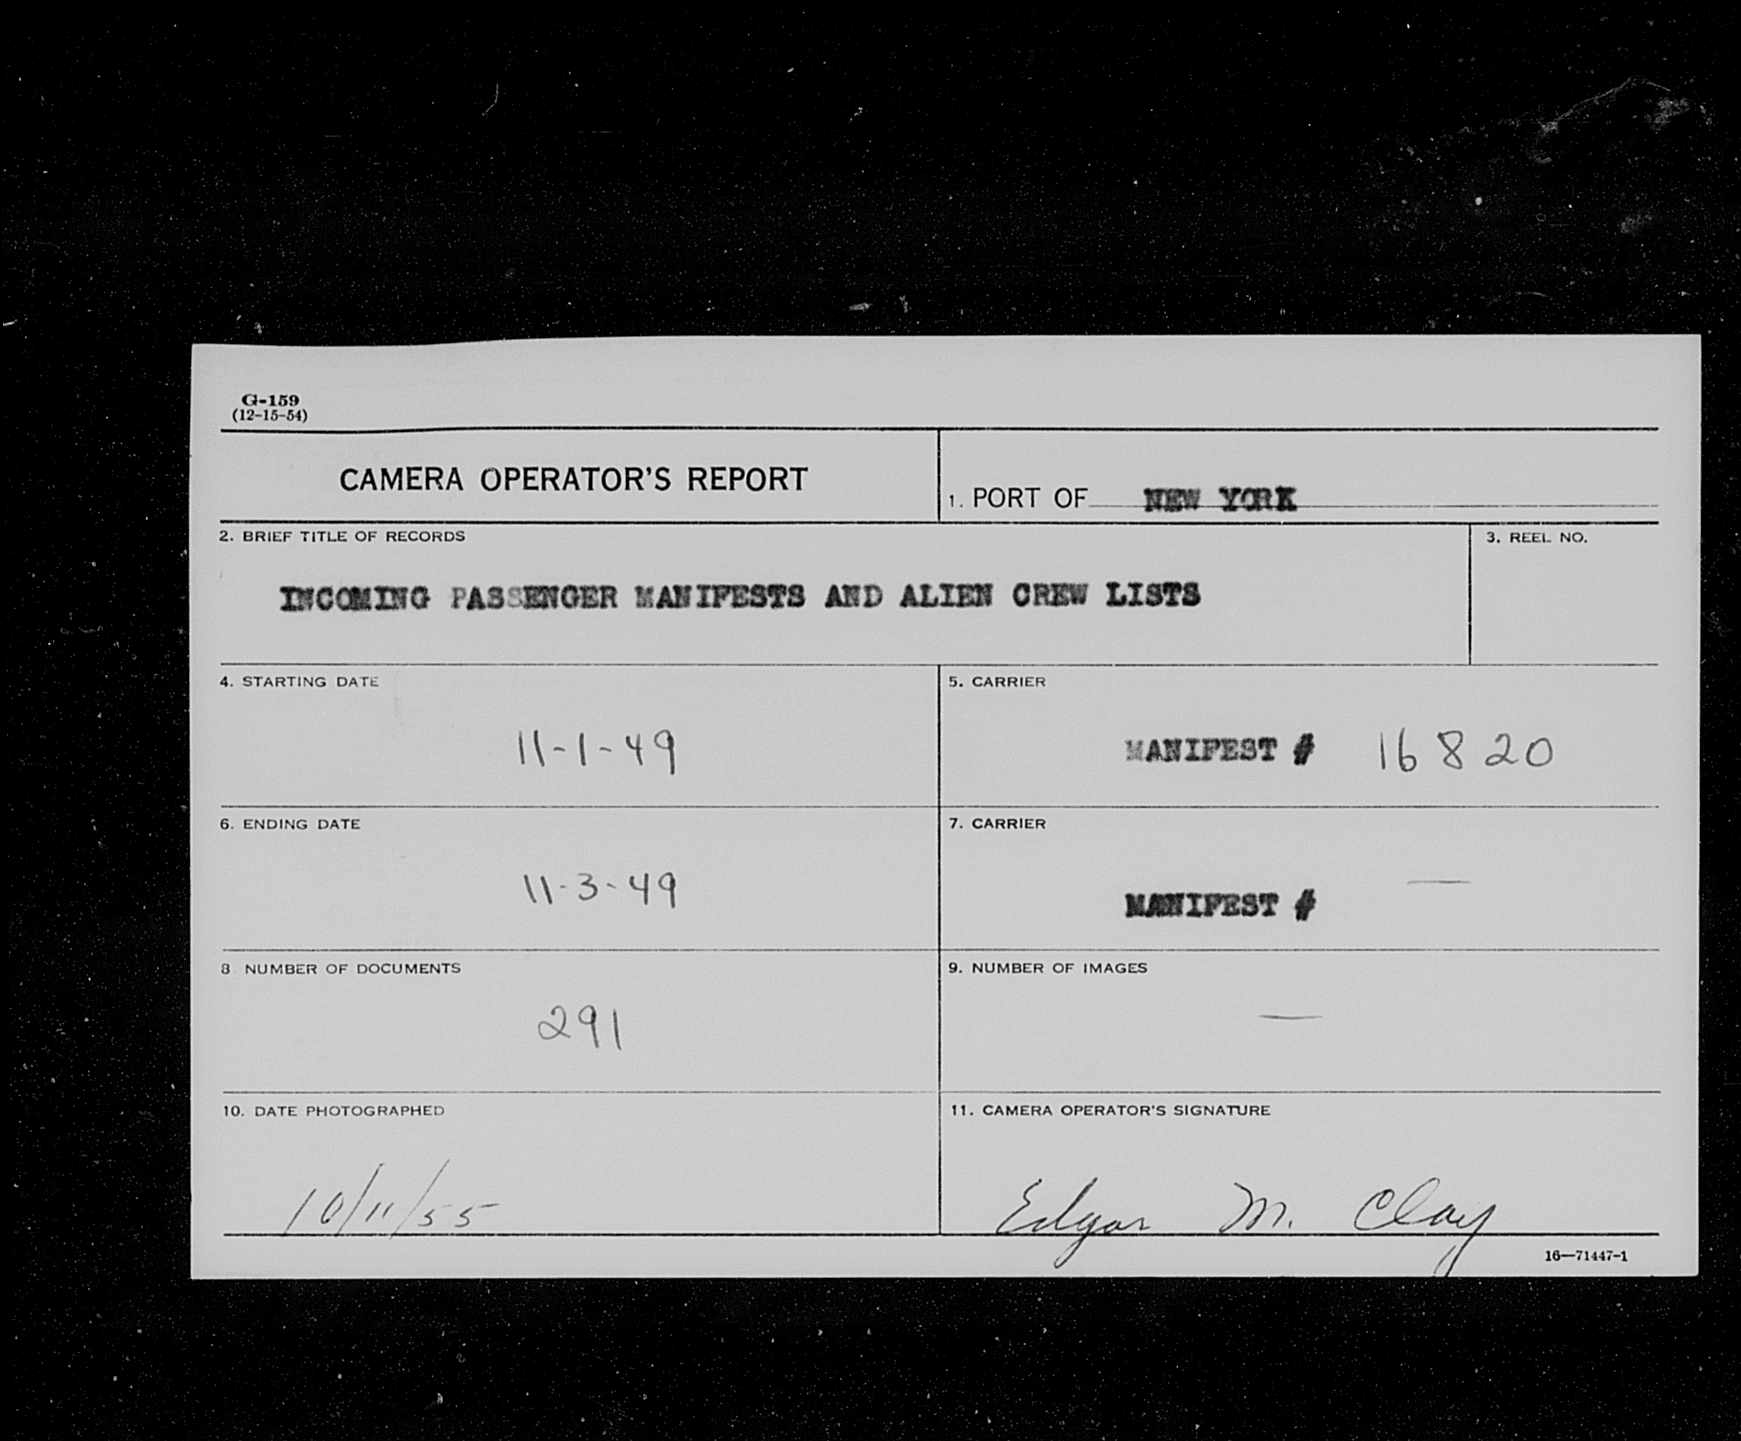 G-159
(12-15-54)
CAMERA OPERATOR'S REPORT
1. PORT OF NEW YORK
2. BRIEF TITLE OF RECORDS
3. REEL NO.
INCOMING PASSENGER MANIFESTS AND ALIEN CREW LISTS
4. STARTING DATE
5. CARRIER
11-1-49
MANIFEST # 16820
6. ENDING DATE
7. CARRIER
11-3-49
MANIFEST # —
8 NUMBER OF DOCUMENTS
9. NUMBER OF IMAGES
291
—
10. DATE PHOTOGRAPHED
11. CAMERA OPERATOR'S SIGNATURE
10/11/55
Edgar M. Clay
16—71447-1